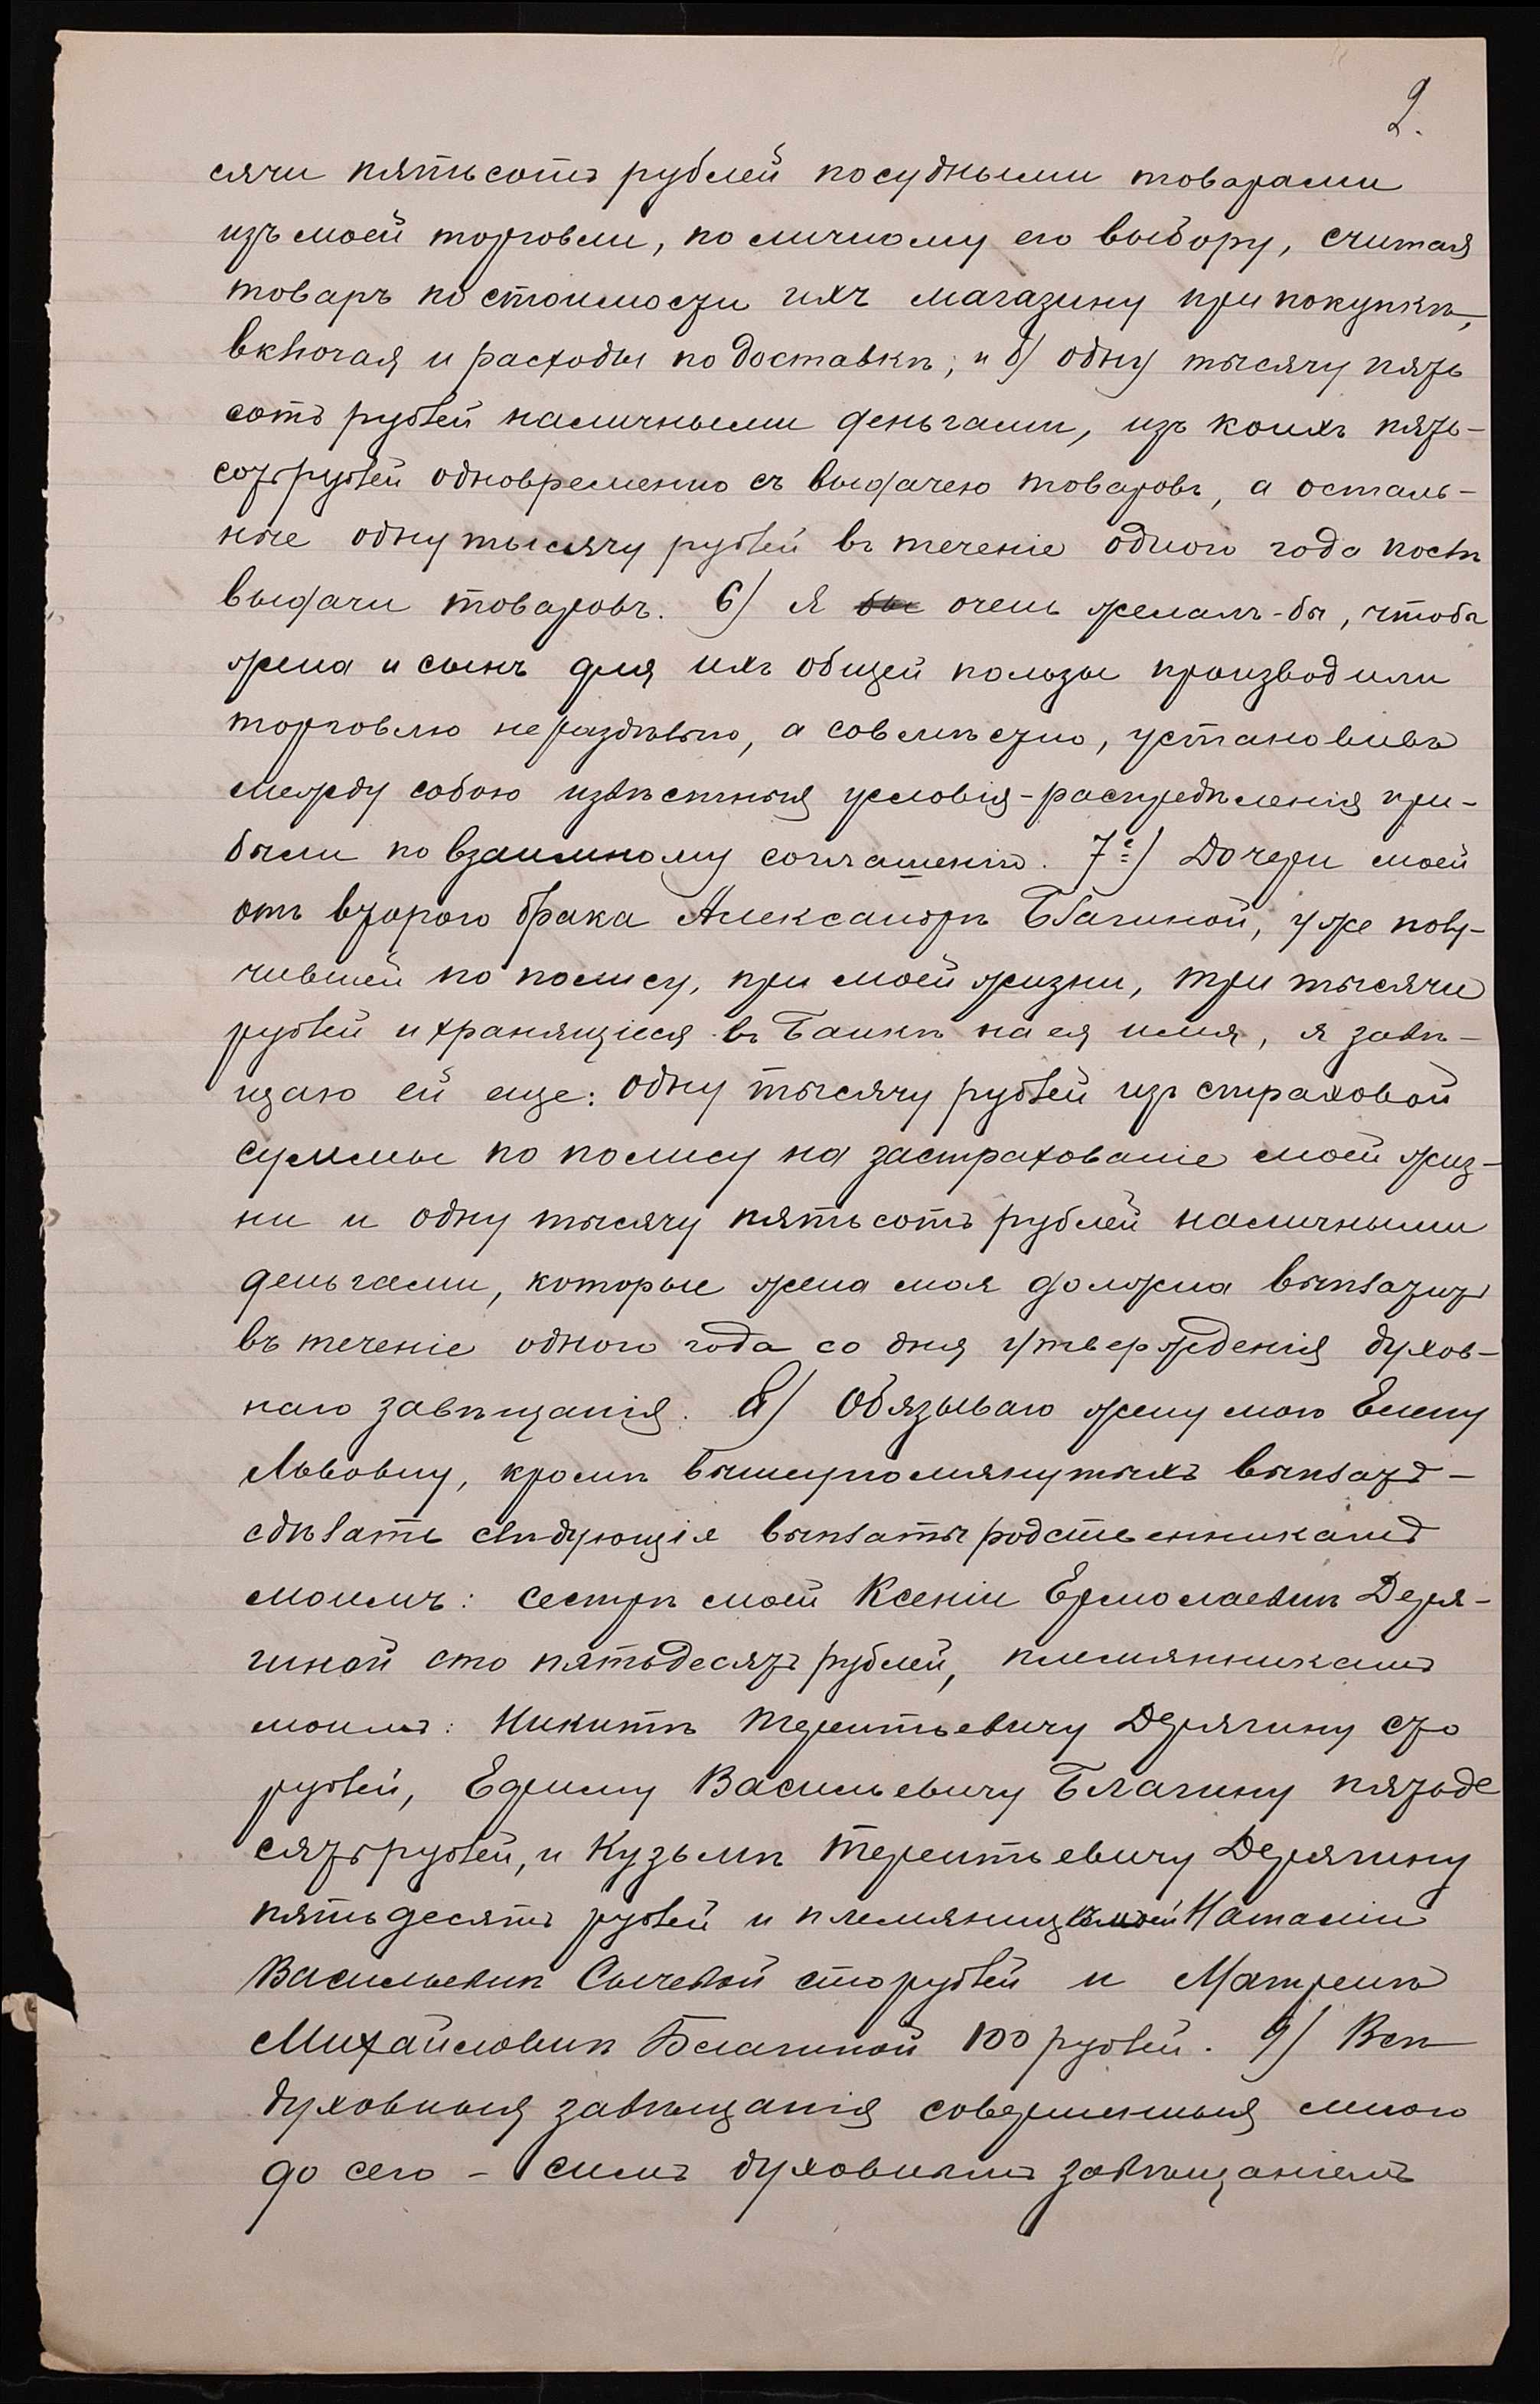 2.
сячи пятьсотъ рублей посудными товарами
изъ моей торговли, по личному его выбору, считая
товаръ по стоимости ихъ магазину при покупкѣ,
включая и расходы по доставкѣ; и б) одну тысячу пять
сотъ рублей наличными деньгами, изъ коихъ пять-
сотъ рублей одновременно съ выдачею товаровъ, а осталь-
ные одну тысячу рублей въ теченіе одного года послѣ
выдачи товаровъ. 6) Я бы очень желалъ-бы, чтобы
жена и сынъ для ихъ общей пользы производили
торговлю нераздѣльно, а совмѣстно, установивъ
между собою извѣстныя условія-распредѣленія при-
были по взаимному соглашенію. 7е) Дочери моей
отъ второго брака Александрѣ Благиной, уже полу-
чившей по полису, при моей жизни, три тысячи
рублей и хранящіеся въ Банкѣ на ея имя, я завѣ-
щаю ей еще: одну тысячу рублей изъ страховой
суммы по полису на застрахованіе моей жиз-
ни и одну тысячу пятьсотъ рублей наличными
деньгами, которые жена моя должна выплатить
въ теченіе одного года со дня утвержденія духов-
наго завѣщанія. 8) Обязываю жену мою Елену
Львовну, кромѣ вышеупомянутыхъ выплатъ -
сдѣлать слѣдующія выплаты родственникамъ
моимъ: сестрѣ моей Ксеніи Ермолаевнѣ Деря-
гиной сто пятьдесятъ рублей, племянникамъ
моимъ: Никитѣ Терентьевичу Дерягину сто
рублей, Ефиму Васильевичу Благину пятьде
сятъ рублей, и Кузьмѣ Терентьевичу Дерягину
пятьдесятъ рублей и племянницѣ моей Наталіи
Васильевнѣ Сычевой сто рублей и Матренѣ
Михайловнѣ Благиной 100 рублей. 9) Всѣ
духовныя завѣщанія совершенныя мною
до сего - симъ духовнымъ завѣщаніемъ